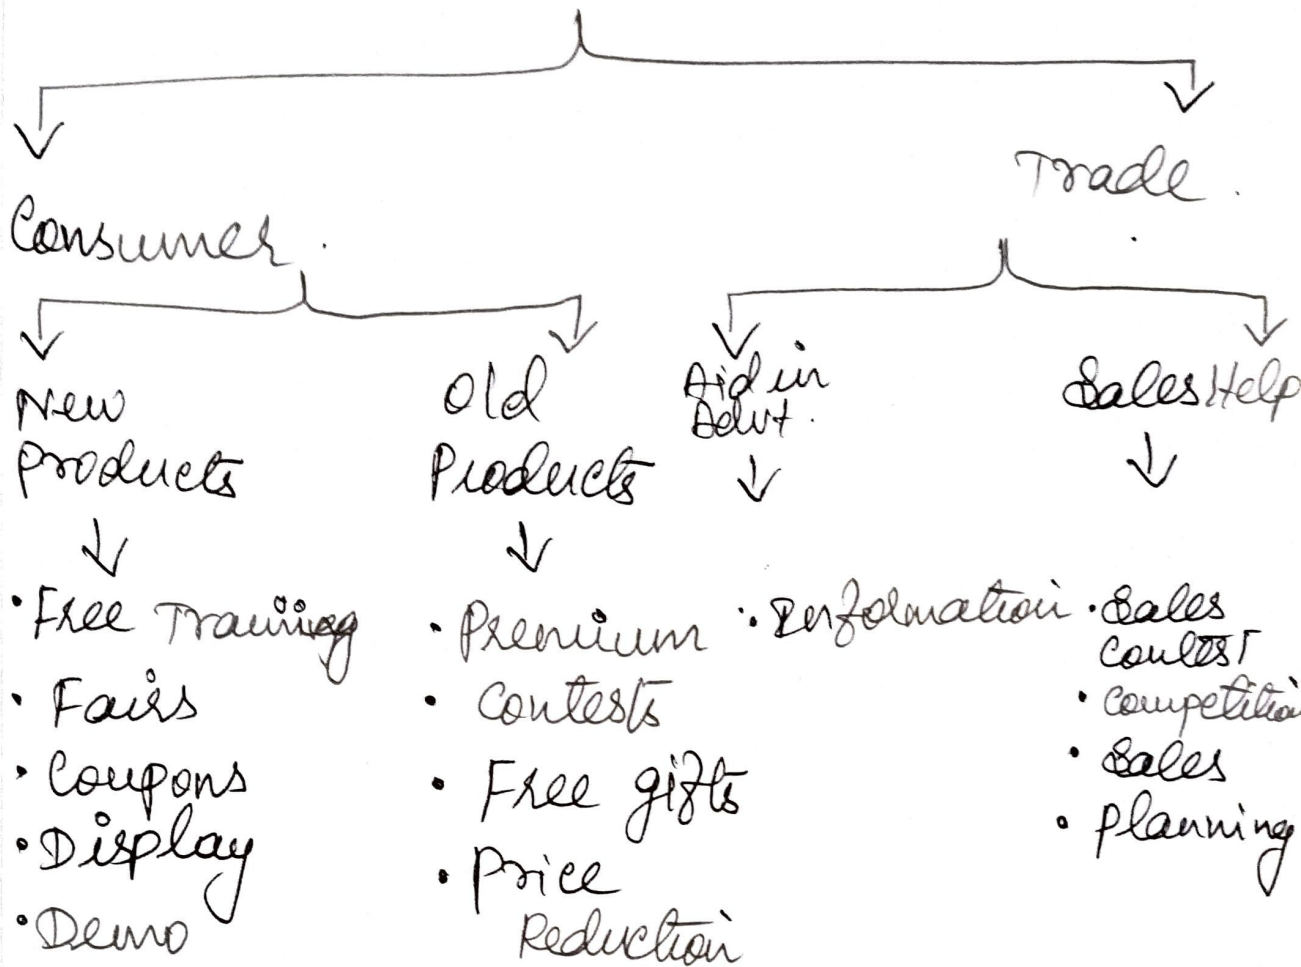 Trade.
Consumer.
New
products
Old
Products
Aid in
Advt.
Sales Help
• Free Training
• Fairs
• Coupons
• Display
• Demo
• Premium
• Contests
• Free gifts
• Price
Reduction
• Information
• Sales
Contest
• Competition
• Sales
• Planning